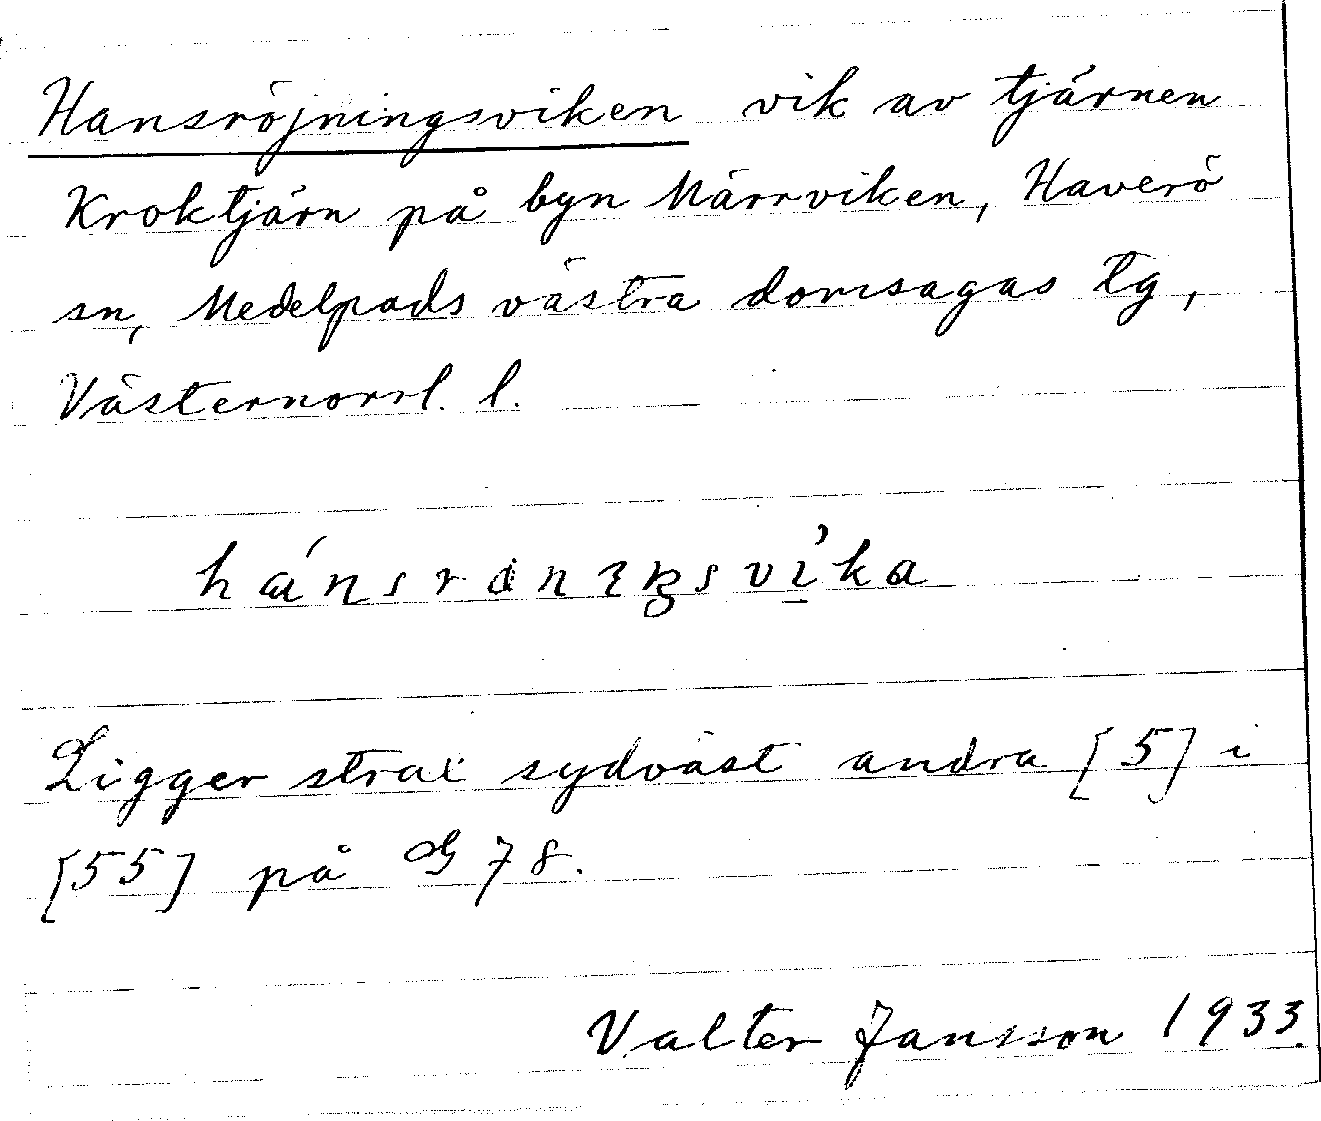 Hansröjningsviken vik av tjärnen
Kroktjärn på byn Märrviken, Haverö
sn, Medelpads västra domsagas tg,
Västernorrl. l.
Ligger strax sydväst andra [5] i
[55] på G 78.
Valter Jansson 1933.